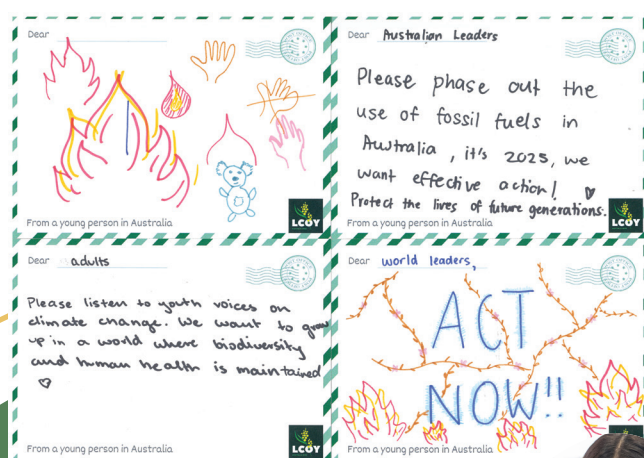 Dear
From a young person in Australia
LCOY
Dear Australian Leaders
Please phase out the
use of fossil fuels in
Australia, it's 2025, we
want effective action!
Protect the lives of future generations.
From a young person in Australia
LCOY
Dear adults
Please listen to youth voices on
climate change. We want to grow
up in a world where biodiversity
and human health is maintained
From a young person in Australia
LCOY
Dear world leaders,
ACT
NOW!!
From a young person in Australia